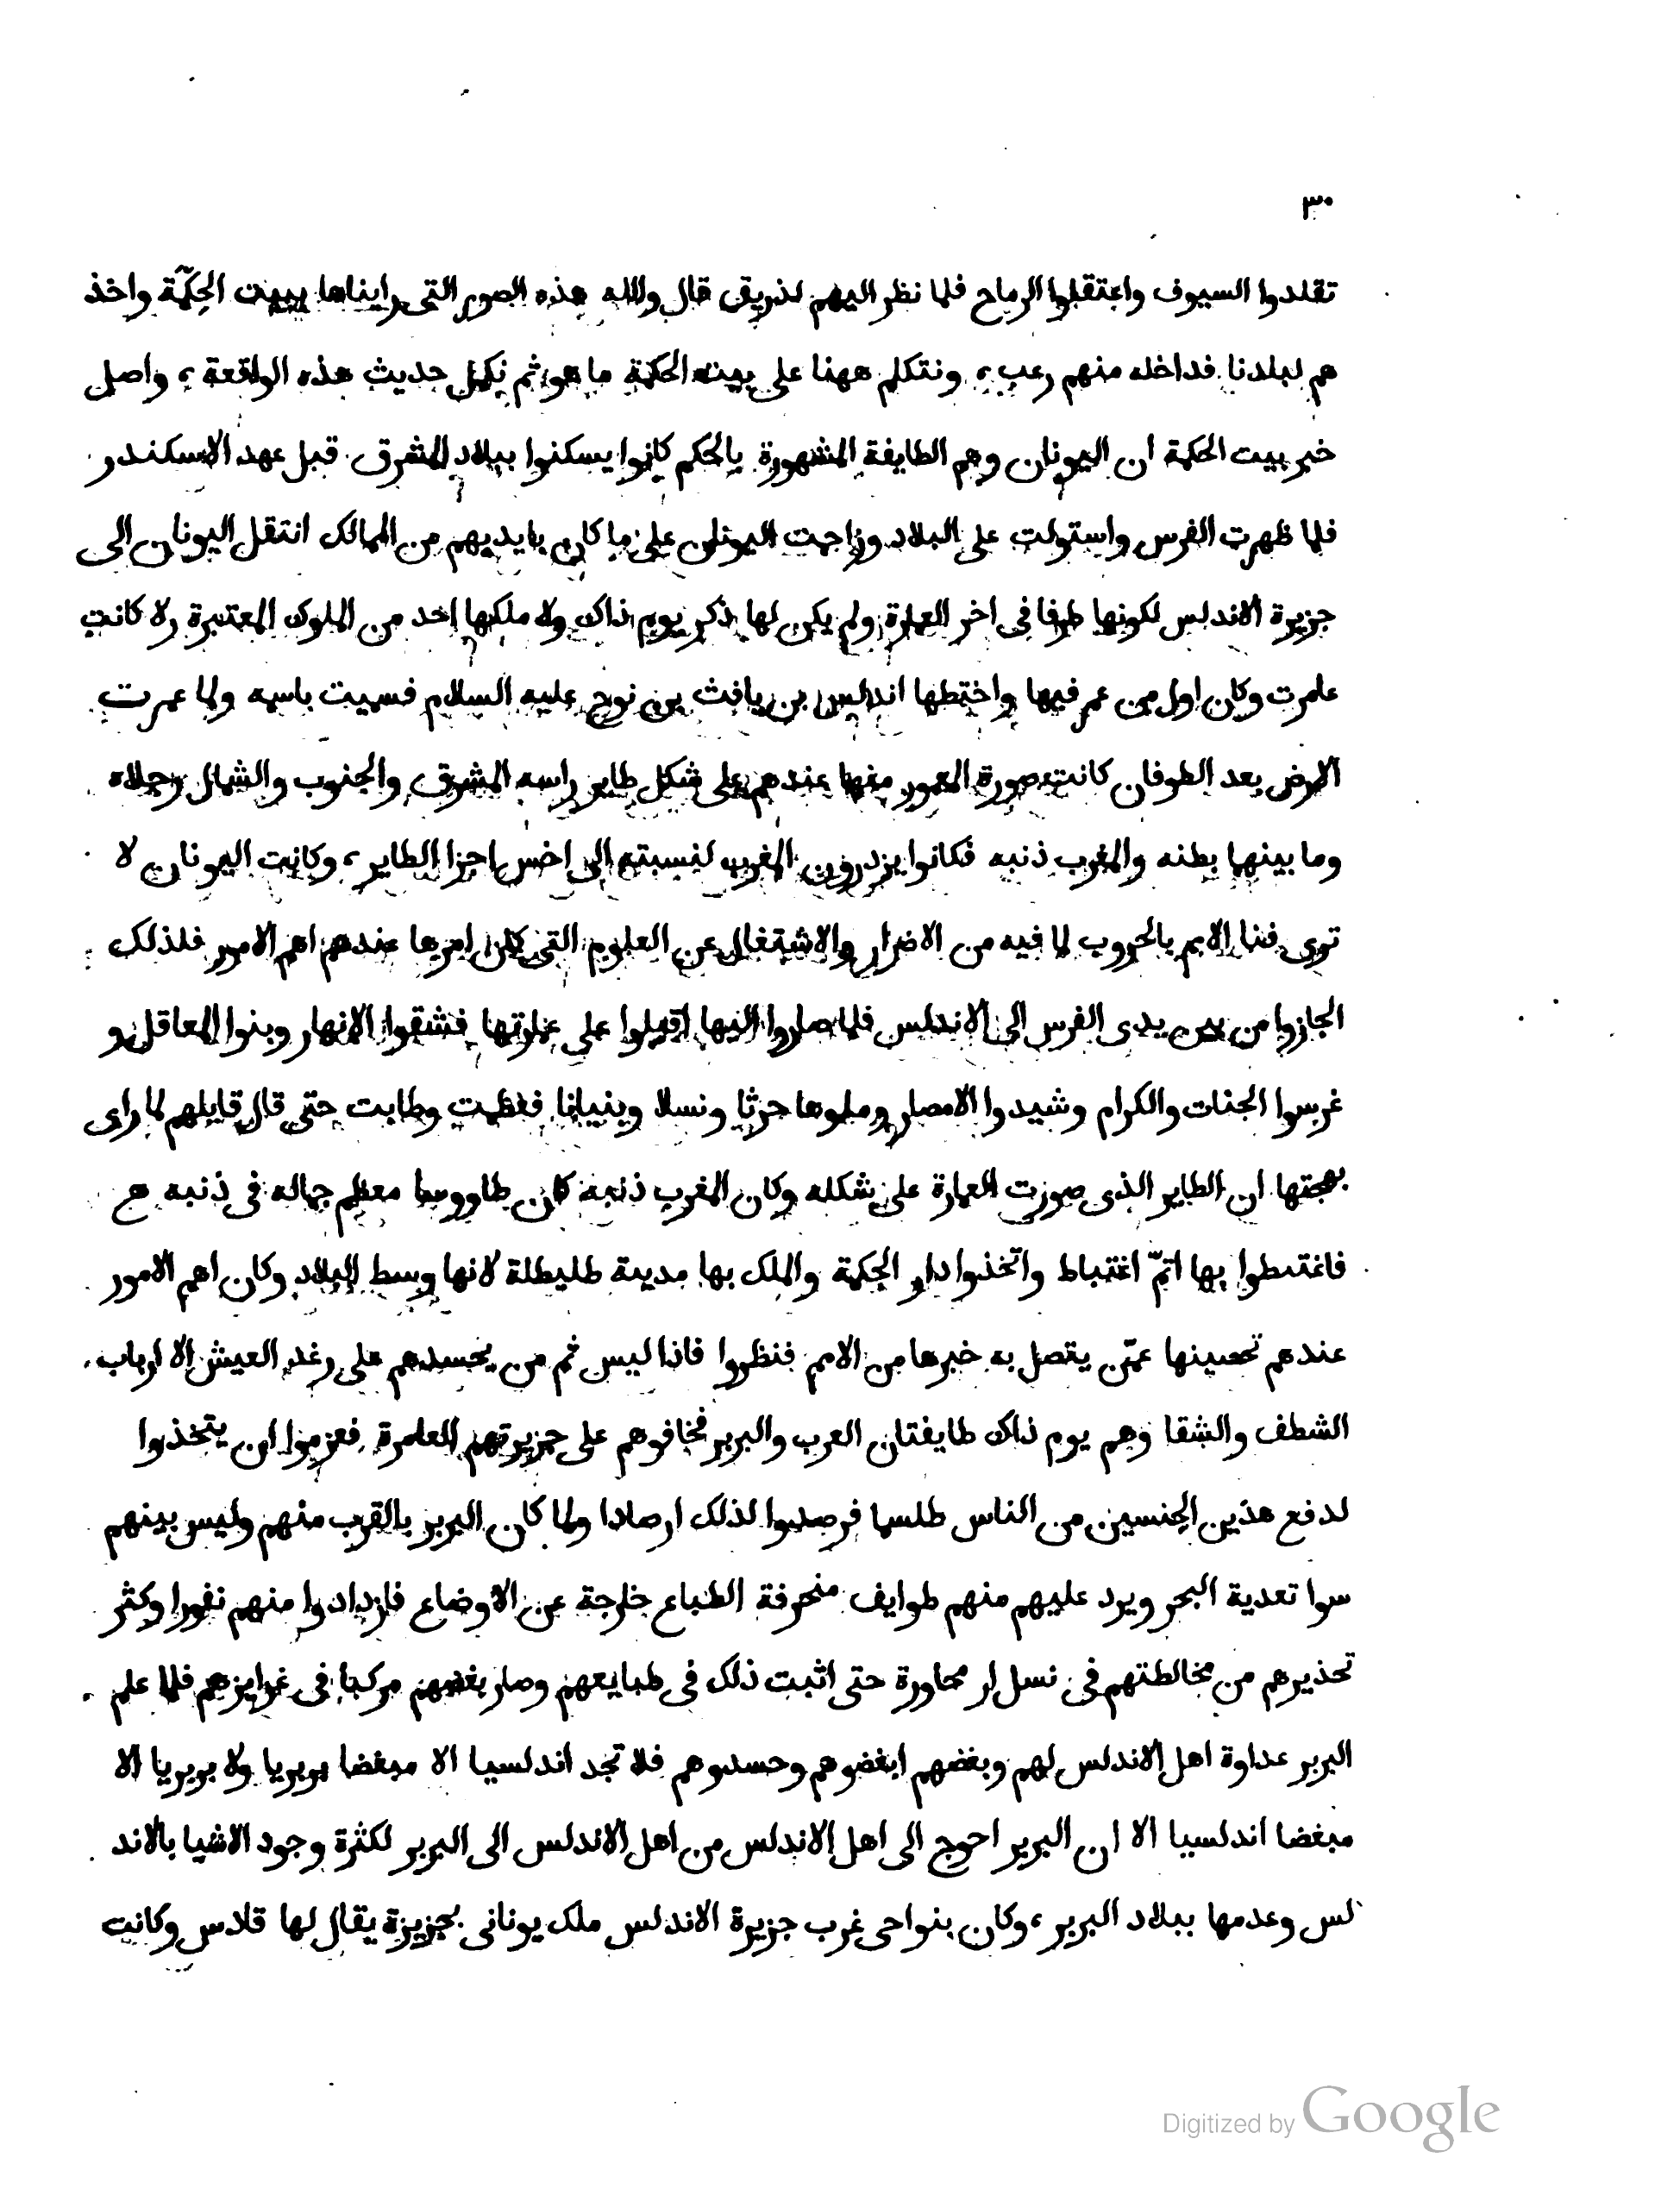 ٣٠
تقلدوا السيوف واعتقلوا الرماح فلما نظر اليهم لذريق قال والله هذه الصور التى رايناها ببيت الحكمة واخذ
هم لبلدنا فداخله منهم رعب، ونتكلم ههنا على بيت الحكمة ما هو ثم نكمل حديث هذه الواقعة، واصل
خبر بيت الحكمة ان اليونان وهم الطايفة المشهورة بالحكم كانوا يسكنوا ببلاد المشرق قبل عهد الاسكندر
فلما ظهرت الفرس واستولت على البلاد وزاحمت اليونان على ما كان بايديهم من الممالك انتقل اليونان الى
جزيرة الاندلس لكونها طرفا فى اخر العمارة ولم يكن لها ذكر يوم ذاك ولا ملكها احد من الملوك المعتبرة ولا كانت
عامرت وكان اول من عمر فيها واختطها اندلس بن يافث بن نوح عليه السلام فسميت باسمه ولما عمرت
الارض بعد الطوفان كانت صورة المعمور منها عندهم على شكل طاير راسه المشرق والجنوب والشمال رجلاه
وما بينهما بطنه والمغرب ذنبه فكانوا يزدرون المغرب لنسبته الى اخس اجزا الطاير، وكانت اليونان لا
ترى فنا الامم بالحروب لما فيه من الاضرار والاشتغال عن العلوم التى كان امرها عندهم اهم الامور فلذلك
انجازوا من بين يدى الفرس الى الاندلس فلما صاروا اليها اقبلوا على عمارتها فشقوا الانهار وبنوا المعاقل و
غرسوا الجنات والكرام وشيدوا الامصار وملوها حرثا ونسلا وبنيانا فعظمت وطابت حتى قال قايلهم لما راى
بهجتها ان الطاير الذى صورت العمارة على شكله وكان المغرب ذنبه كان طاووسا معظم جماله فى ذنبه هج
فاغتبطوا بها اتمّ اغتباط واتخذوا دار الحكمة والملك بها مدينة طليطلة لانها وسط البلاد وكان اهم الامور
عندهم تحصينها عمّن يتصل به خبرها من الامم فنظروا فاذا ليس ثم من يحسدهم على رغد العيش الا ارباب
الشظف والشقا وهم يوم ذاك طايفتان العرب والبربر فخافوهم على جزيرتهم العامرة فعزموا ان يتخذوا
لدفع هذين الجنسين من الناس طلسما فرصدوا لذلك ارصادا ولما كان البربر بالقرب منهم وليس بينهم
سوا تعدية البحر ويرد عليهم منهم طوايف منحرفة الطباع خارجة عن الاوضاع فازدادوا منهم نفورا وكثر
تحذيرهم من مخالطتهم فى نسل او مجاورة حتى اثبت ذلك فى طبايعهم وصار بغضهم مركبا فى غرايزهم فلما علم
البربر عداوة اهل الاندلس لهم وبغضهم ابغضوهم وحسدوهم فلا تجد اندلسيا الا مبغضا بربريا ولا بربريا الا
مبغضا اندلسيا الا ان البربر احوج الى اهل الاندلس من اهل الاندلس الى البربر لكثرة وجود الاشيا بالاند
لس وعدمها ببلاد البربر، وكان بنواحى غرب جزيرة الاندلس ملك يونانى بجزيزة يقال لها قادس وكانت
Digitized by Google